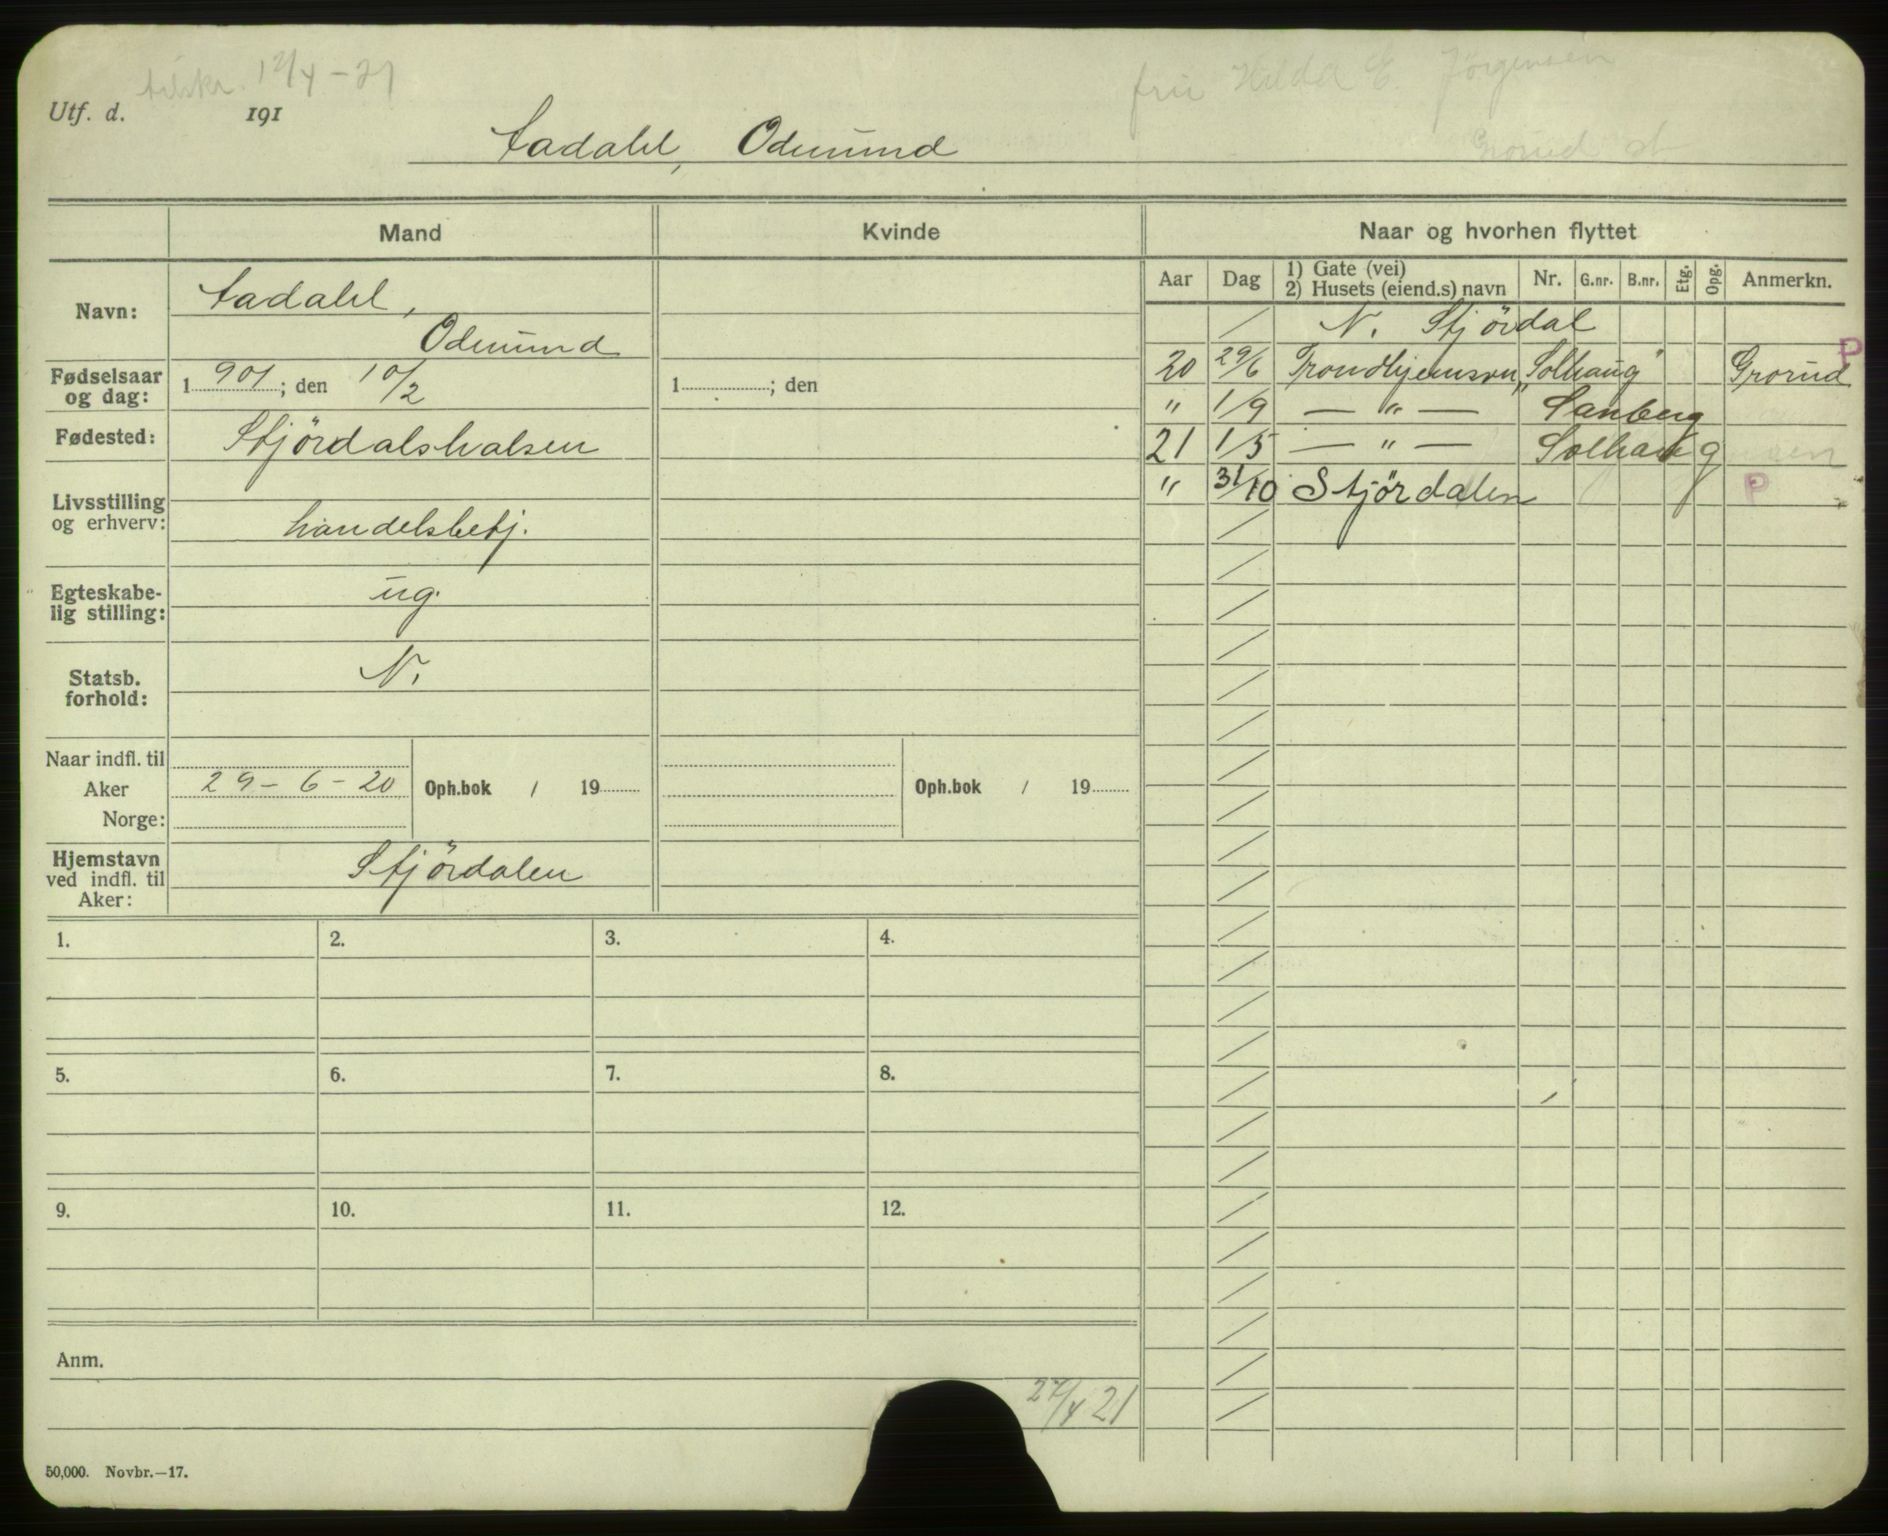 tilskr. 12/4 - 21
fru Hilda E. Jörgensen
Utf. d. 191
Aadahl, Odmund
Grorud st
Mand
Kvinde
Naar og hvorhen flyttet
Aar Dag 1) Gate (vei) 2) Husets (eiend.s) navn Nr. G.nr. B.nr. Etg. Opg. Anmerkn.
Navn: Aadahl,
Odmund
Fødselsaar og dag: 1901; den 10/2
1 ; den
Fødested: Stjördalshalsen
Livsstilling og erhverv: handelsbetj.
Egteskabelig stilling: ug.
Statsb. forhold: N.
Naar indfl. til
Aker 29 - 6 - 20 Oph.bok / 19
Oph.bok / 19
Norge:
Hjemstavn ved indfl. til Aker: Stjördalen
/ N. Stjördal
20 29/6 Trondhjemsvn „Solhaug" Grorud P
" 1/9 — " — Sanberg
21 1/5 — " — Solhaug
" 31/10 Stjördalen P
1. 2. 3. 4.
5. 6. 7. 8.
9. 10. 11. 12.
Anm.
27/4 21
50,000. Novbr.—17.